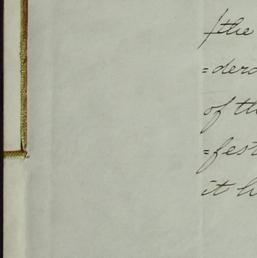 /the
=der
of th
=fest
it h